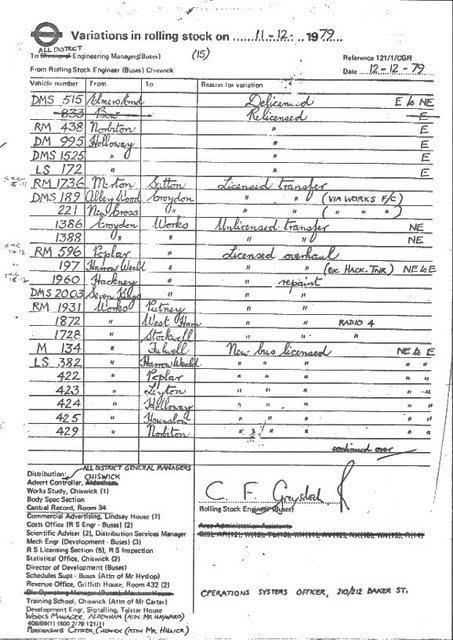 Variations in rolling stock on 11-12- 1979
ALL DISTRICT (15)
To Divisional Engineering Managers (Buses) Reference 121/1/CGR
From Rolling Stock Engineer (Buses) Chiswick Date 12-12-79
Vehicle number From To Reason for variation
DMS 515 Elmers End Delicensed E to NE
833 Bow Relicensed E
RM 438 Norbiton " E
DM 995 Holloway " E
DMS 1525 " " E
LS 172 " " E
RM 1736 Merton Sutton Licensed transfer
DMS 189 Abbey Wood Croydon " " (VIA WORKS F/C)
221 New Cross " " " ( " " " )
1386 Croydon Works Unlicensed transfer NE
1388 " " " " NE
RM 596 Poplar " Licensed overhaul
197 Harrow Weald " " " (EX HACK. TNR) NE to E
1960 Hackney " " repaint
DMS 2003 Seven Kings " " "
RM 1931 Works Putney " "
1872 " West Ham " " RADIO 4
1728 " Stockwell " "
M 134 " Fulwell New bus licensed NE to E
LS 382 " Harrow Weald " " " " "
422 " Poplar " " " " "
423 " Leyton " " " " "
424 " Holloway " " " " "
425 " Hounslow " " " " "
429 " Norbiton " " " " "
continued over
Distribution: ALL DISTRICT GENERAL MANAGERS
CHISWICK
Advert Controller, Aldenham
Works Study, Chiswick (1)
Body Spec Section
Central Record, Room 34
Commercial Advertising, Lindsay House (7)
Costs Office (R S Engr - Buses) (2)
Scientific Adviser (2), Distribution Services Manager
Mech Engr (Development - Buses) (3)
R S Licensing Section (5), R S Inspection
Statistical Office, Chiswick (2)
Director of Development (Buses)
Schedules Supt - Buses (Attn of Mr Hyslop)
Revenue Office, Griffith House, Room 432 (2)
Training School, Chiswick (Attn of Mr Carter)
Development Engr, Signalling, Telstar House
WORKS MANAGER, ALDENHAM (ATTN. MR HAYWARD)
PURCHASING OFFICER, CHISWICK (ATTN MR. HILLICK)
C F
Rolling Stock Engineer (Buses)
Area Administration Assistants
OPERATIONS SYSTEMS OFFICER, 210/212 BAKER ST.